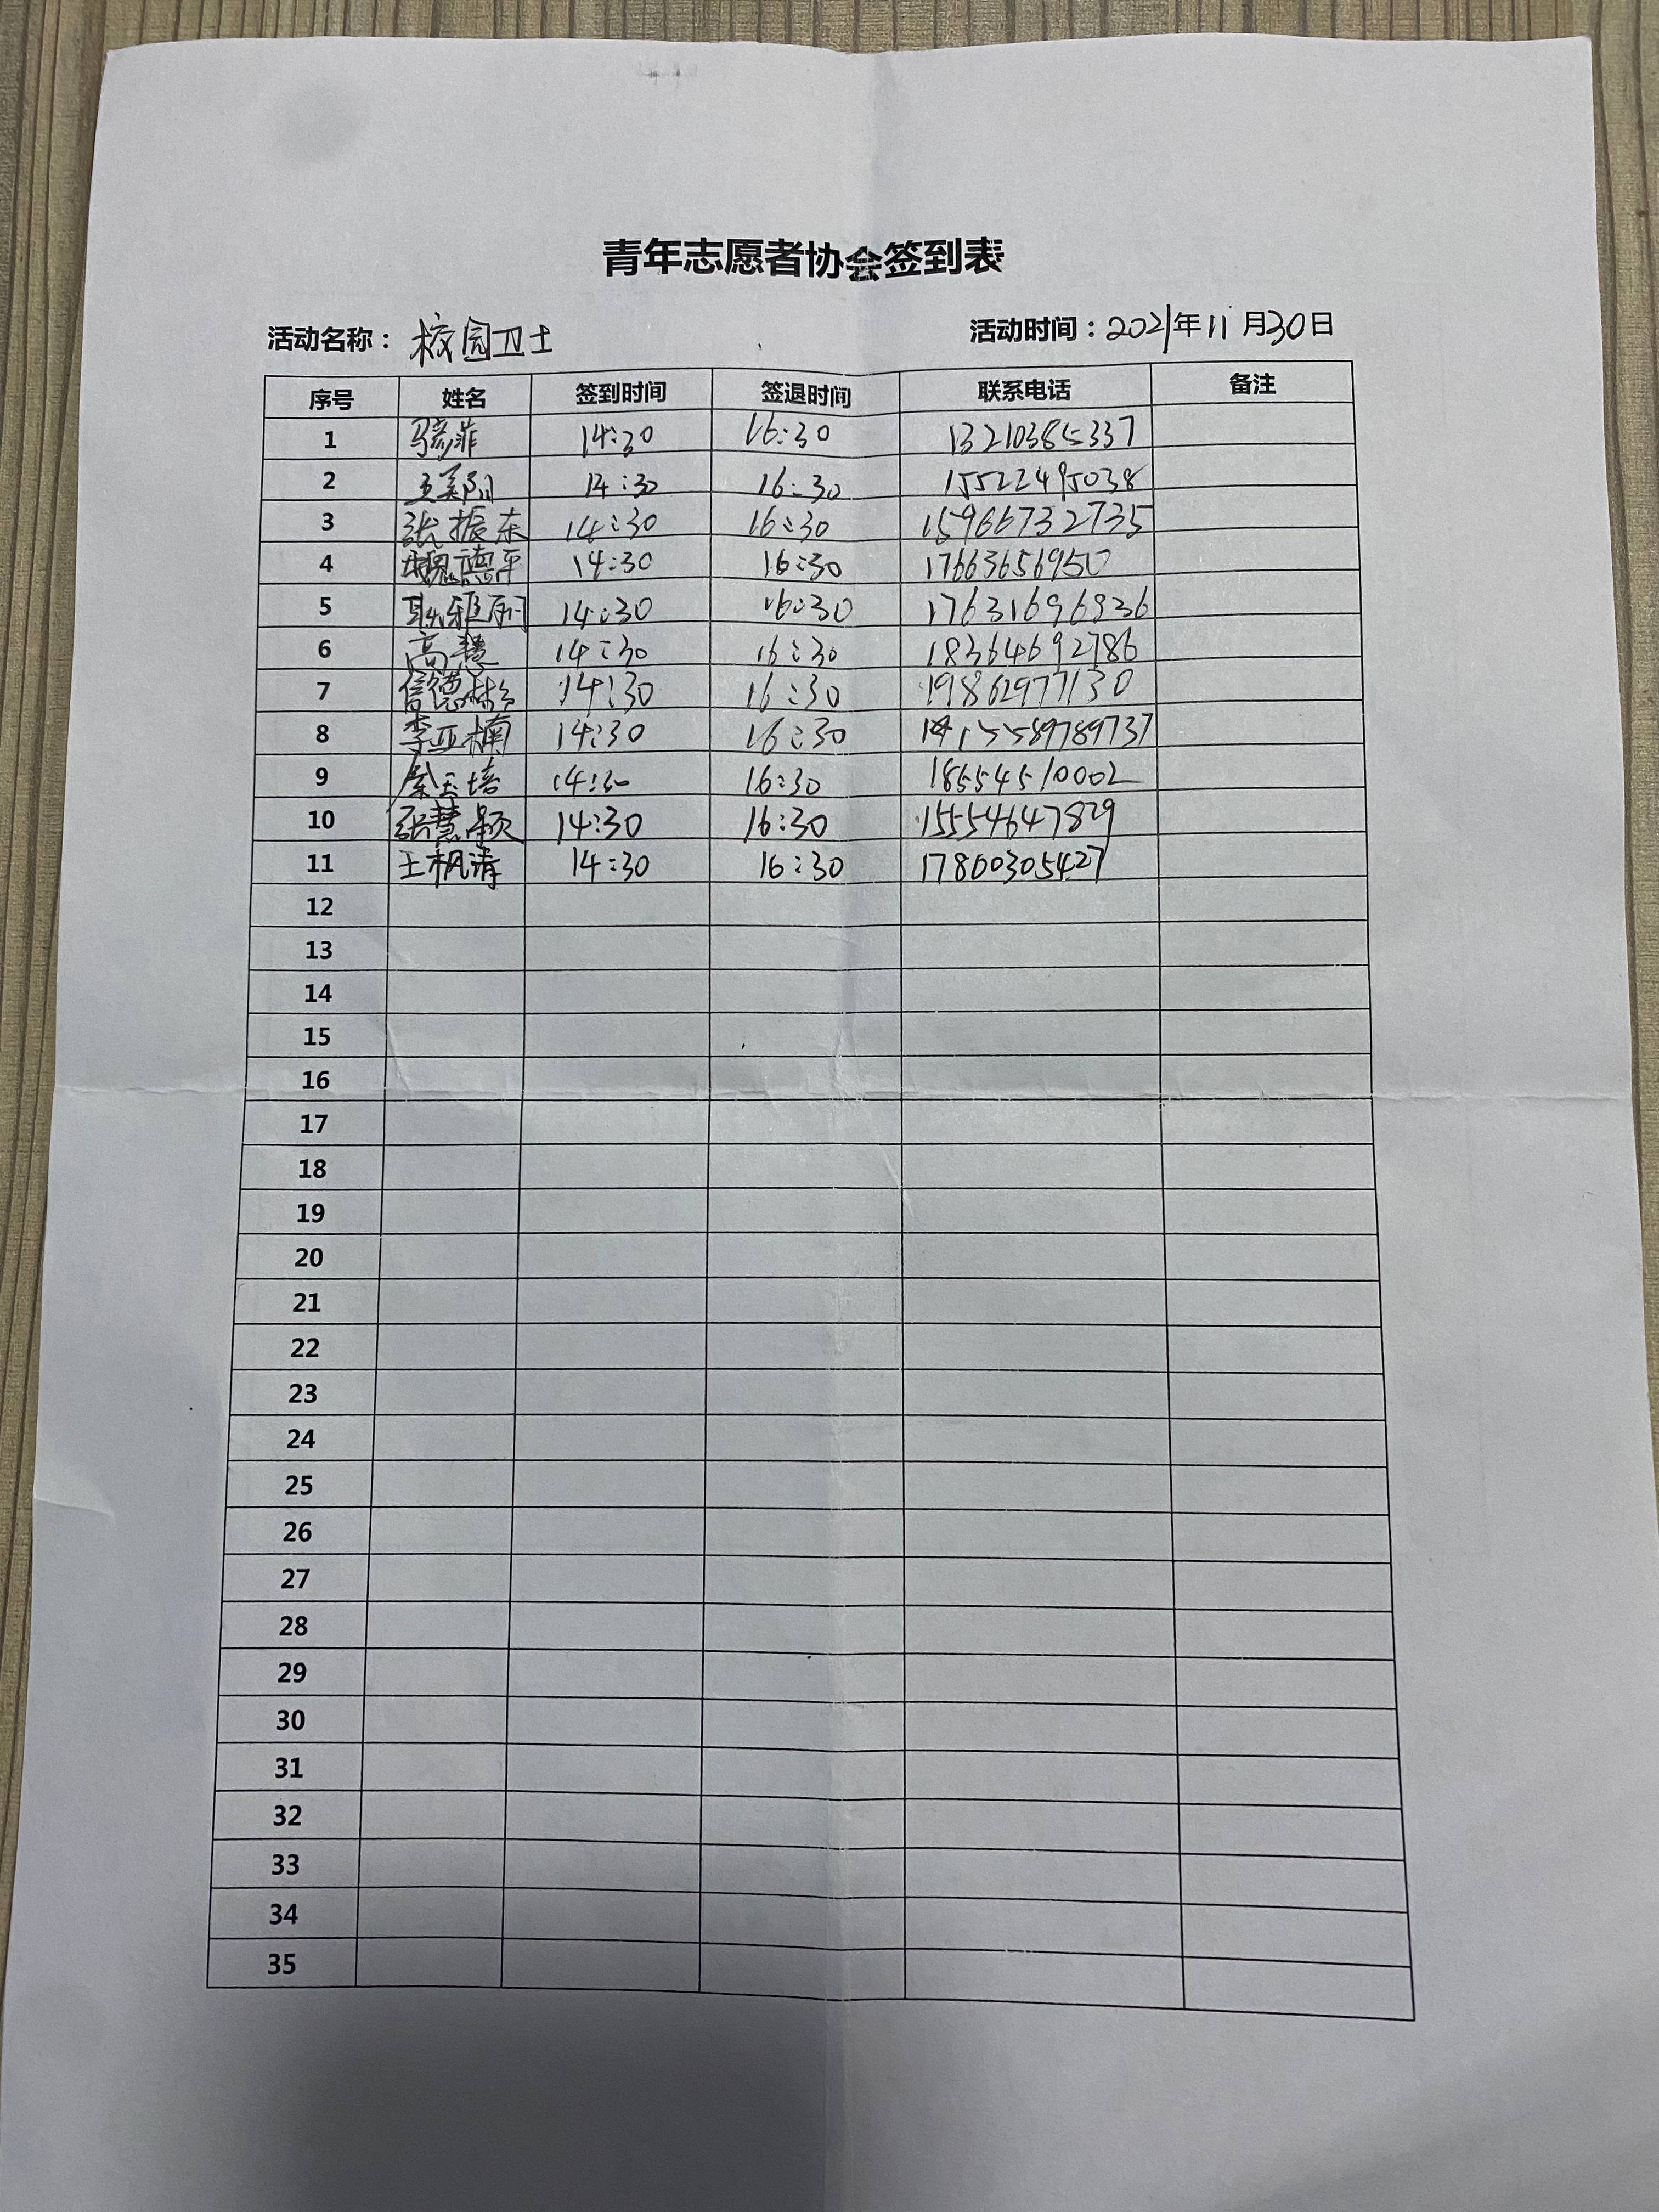 青年志愿者协会签到表
活动名称：校园卫士 活动时间：2021年11月30日
序号 姓名 签到时间 签退时间 联系电话 备注
1 马彦菲 14:30 16:30 13210385337
2 王美阳 14:30 16:30 15522495038
3 张振东 14:30 16:30 15966732735
4 魏德平 14:30 16:30 17663656950
5 耿雅丽 14:30 16:30 17631696936
6 高慧 14:30 16:30 18364692786
7 信德彬 14:30 16:30 19862977130
8 李亚楠 14:30 16:30 15589789737
9 秦玉培 14:30 16:30 18554510002
10 张慧颖 14:30 16:30 15554647829
11 王枫清 14:30 16:30 17860305427
12
13
14
15
16
17
18
19
20
21
22
23
24
25
26
27
28
29
30
31
32
33
34
35